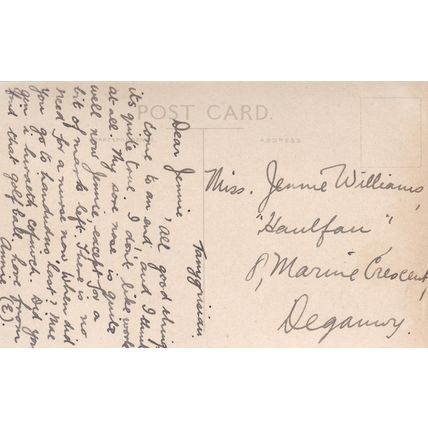 POST CARD.
ADDRESS
Tanygrisiau.
Dear Jennie, "All good things
come to an end" and I think
it's quite true. I don't like work
at all. My sore nose is quite
well now Jennie except for a
bit of mark left. There is no
need for a nurse now. When did
you go to Llandudno last? Mae
gen i hiraeth cofiwch. Did you
find that golf ball, love from
Annie (E).
Miss. Jennie Williams,
"Haulfan",
8, Marine Crescent,
Deganwy.